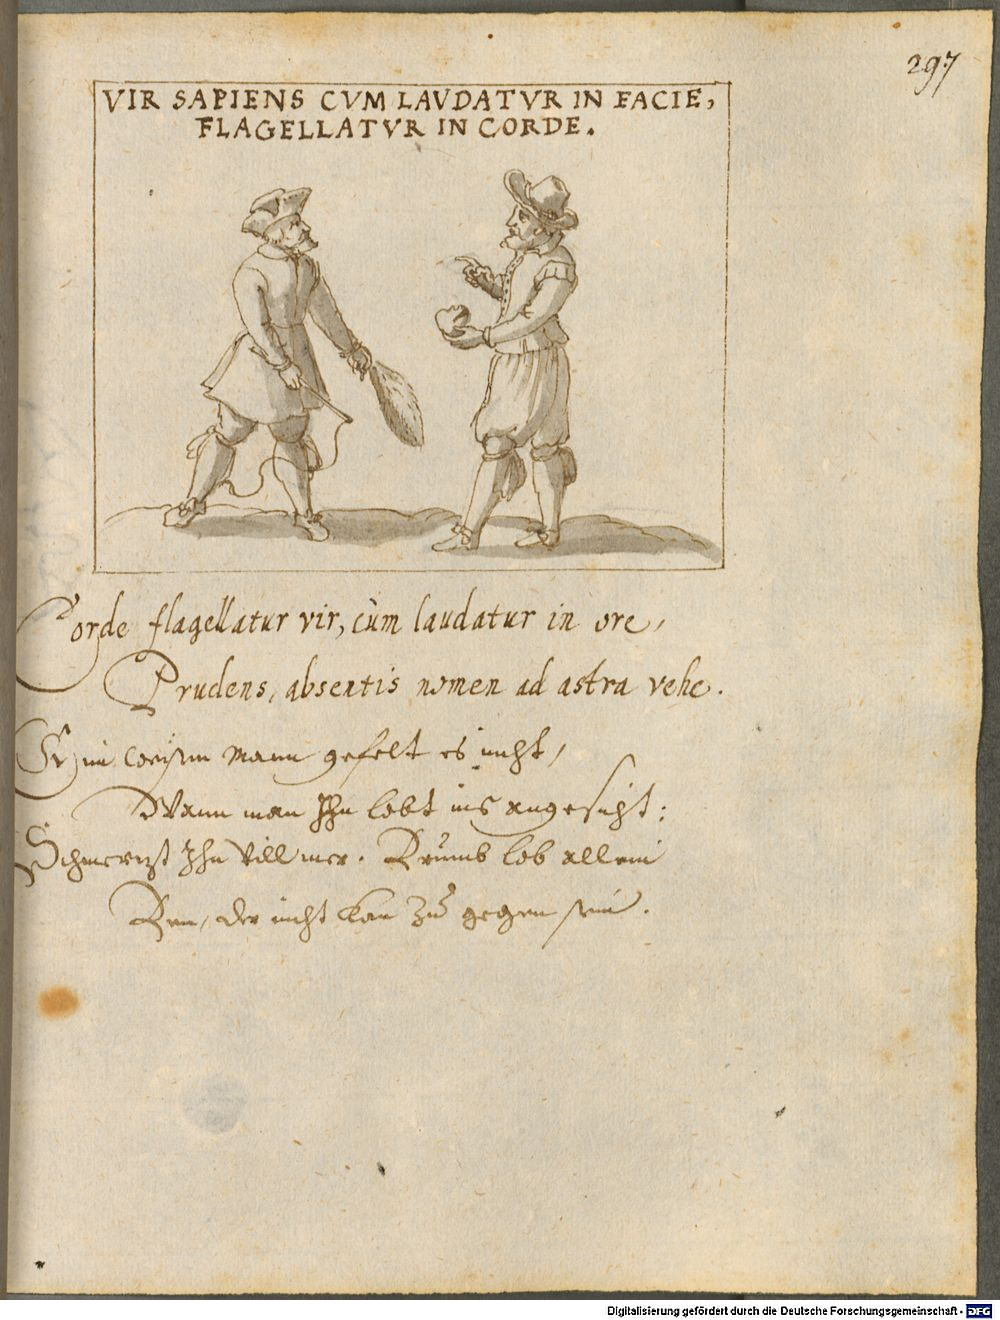 297
VIR SAPIENS CVM LAVDATVR IN FACIE,
FLAGELLATVR IN CORDE.
Corde flagellatur vir, cùm laudatur in ore,
Prudens, absentis nomen ad astra vehe.
Eim weisen Mann gefelt es nicht,
Wann man Ihn lobt ins angesicht:
Schmertzt Ihn vill mer. Drumb lob allein
Den, der nicht kan zu gegen sein.
Digitalisierung gefördert durch die Deutsche Forschungsgemeinschaft - DFG